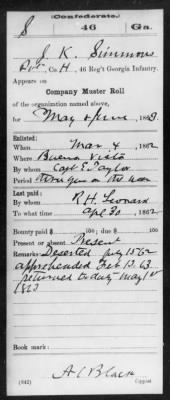 (Confederate.)
S 46 Ga.
J. K. Simmons
Pvt., Co. H, 46 Reg't Georgia Infantry.
Appears on
Company Muster Roll
of the organization named above,
for May & June, 1863.
Enlisted:
When Mar 4, 1862
Where Buena Vista
By whom Capt E. Taylor
Period the war
Last paid:
By whom R. H. Leonard
To what time Apl 30, 1862
Bounty paid $ 100; due $ 100
Present or absent Present
Remarks: Deserted July 15 62
apprehended Feb 13. 63
returned to duty May 1st
1863
Book mark:
A C Black
(642) Copyist.